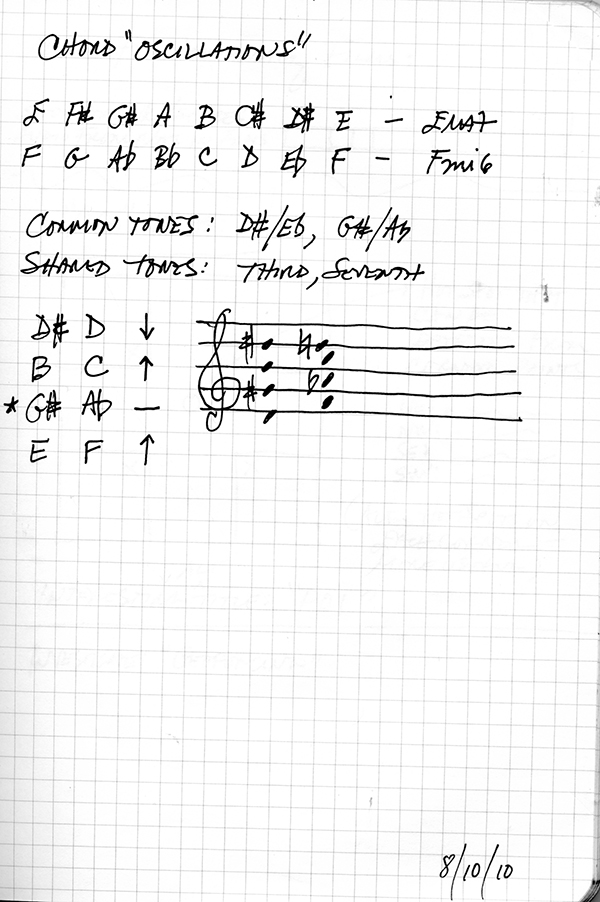 CHORD "OSCILLATIONS"
E F# G# A B C# D# E – EMA7
F G Ab Bb C D Eb F – Fmi6
COMMON TONES: D#/Eb, G#/Ab
SHARED TONES: THIRD, SEVENTH
D# D ↓
B C ↑
* G# Ab —
E F ↑
# ♮
# b
8/10/10